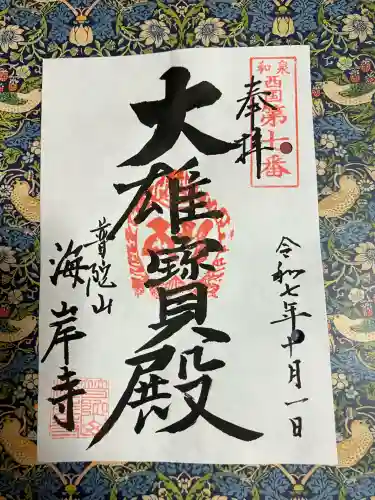 和泉
西国
第十番
奉拝
令和七年十月一日
大雄寶殿
普陀山
海岸寺